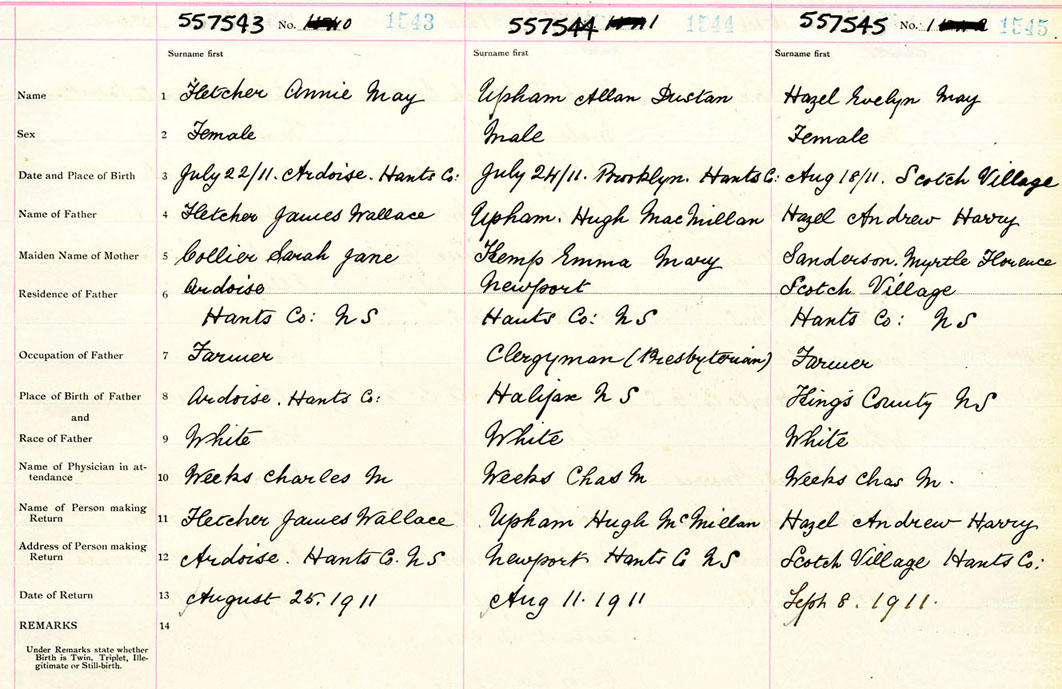 557543 No. 1543 557544 1544 557545 No. 1545
Surname first Surname first Surname first
Name 1 Fletcher Annie May Upham Allan Dustan Hazel Evelyn May
Sex 2 Female Male Female
Date and Place of Birth 3 July 22/11. Ardoise. Hants Co: July 24/11. Brooklyn. Hants Co: Aug 18/11. Scotch Village
Name of Father 4 Fletcher James Wallace Upham. Hugh MacMillan Hazel Andrew Harry
Maiden Name of Mother 5 Collier Sarah Jane Kemp Emma Mary Sanderson. Myrtle Florence
Residence of Father 6 Ardoise Newport Scotch Village
Hants Co: N S Hants Co: N S Hants Co: N S
Occupation of Father 7 Farmer Clergyman (Presbytorian) Farmer
Place of Birth of Father 8 Ardoise. Hants Co: Halifax N S King's County N S
and
Race of Father 9 White White White
Name of Physician in at-
tendance 10 Weeks Charles M Weeks Chas M Weeks Chas M.
Name of Person making
Return 11 Fletcher James Wallace Upham Hugh McMillan Hazel Andrew Harry
Address of Person making
Return 12 Ardoise. Hants Co. N S Newport Hants Co N S Scotch Village Hants Co:
Date of Return 13 August 25. 1911 Aug 11. 1911 Sept 8. 1911.
REMARKS 14
Under Remarks state whether
Birth is Twin, Triplet, Ille-
gitimate or Still-birth.